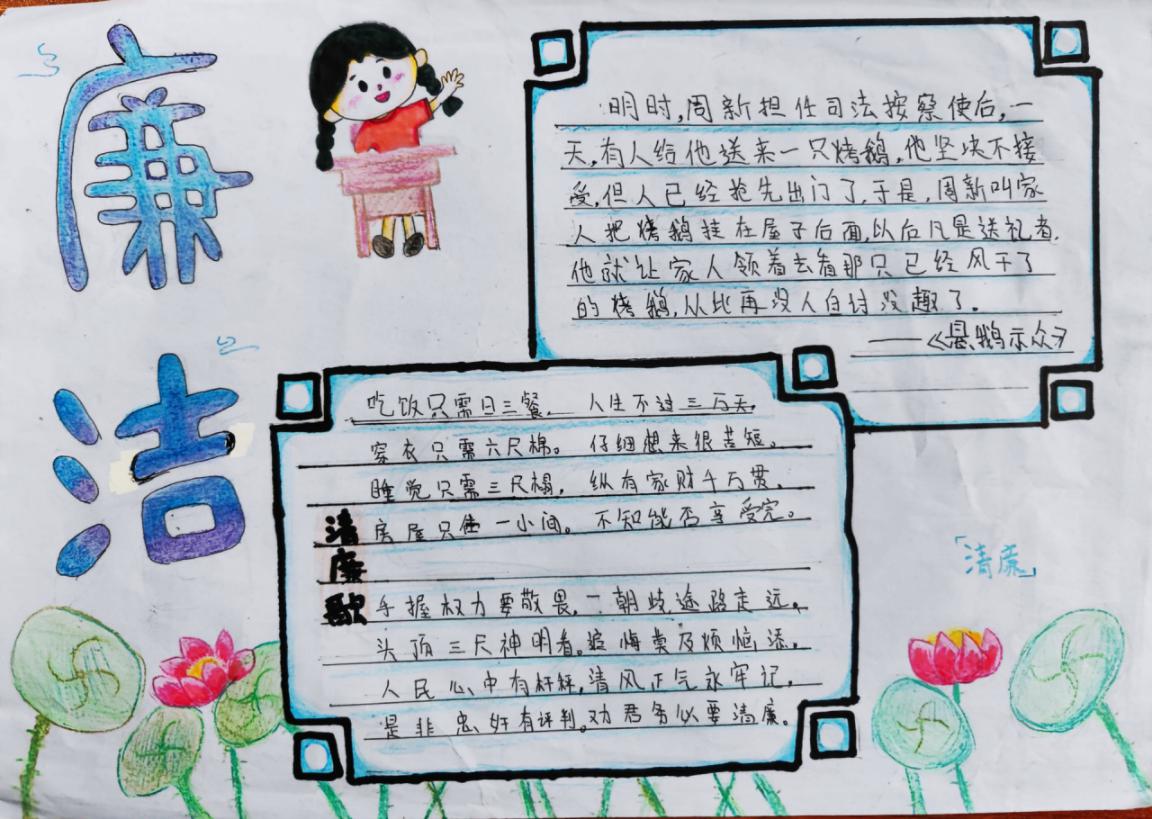 廉
洁
明时,周新担任司法按察使后,一
天,有人给他送来一只烤鹅,他坚决不接
受,但人已经抢先出门了,于是,周新叫家
人把烤鹅挂在屋子后面,以后凡是送礼者,
他就让家人领着去看那只已经风干了
的烤鹅,从此再没人自讨没趣了。
——《悬鹅示众》
清廉歌
吃饭只需日三餐,人生不过三万天,
穿衣只需六尺棉。仔细想来很苦短。
睡觉只需三尺榻,纵有家财千万贯,
房屋只住一小间。不知能否享受完。
手握权力要敬畏,一朝歧途路走远,
头顶三尺神明看。追悔莫及烦恼添。
人民心中有杆秤,清风正气永牢记,
是非忠奸有评判。劝君务必要清廉。
「清廉」